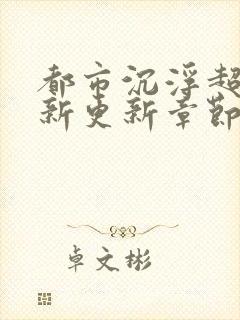 都市沉浮超
新更新章節
卓文彬